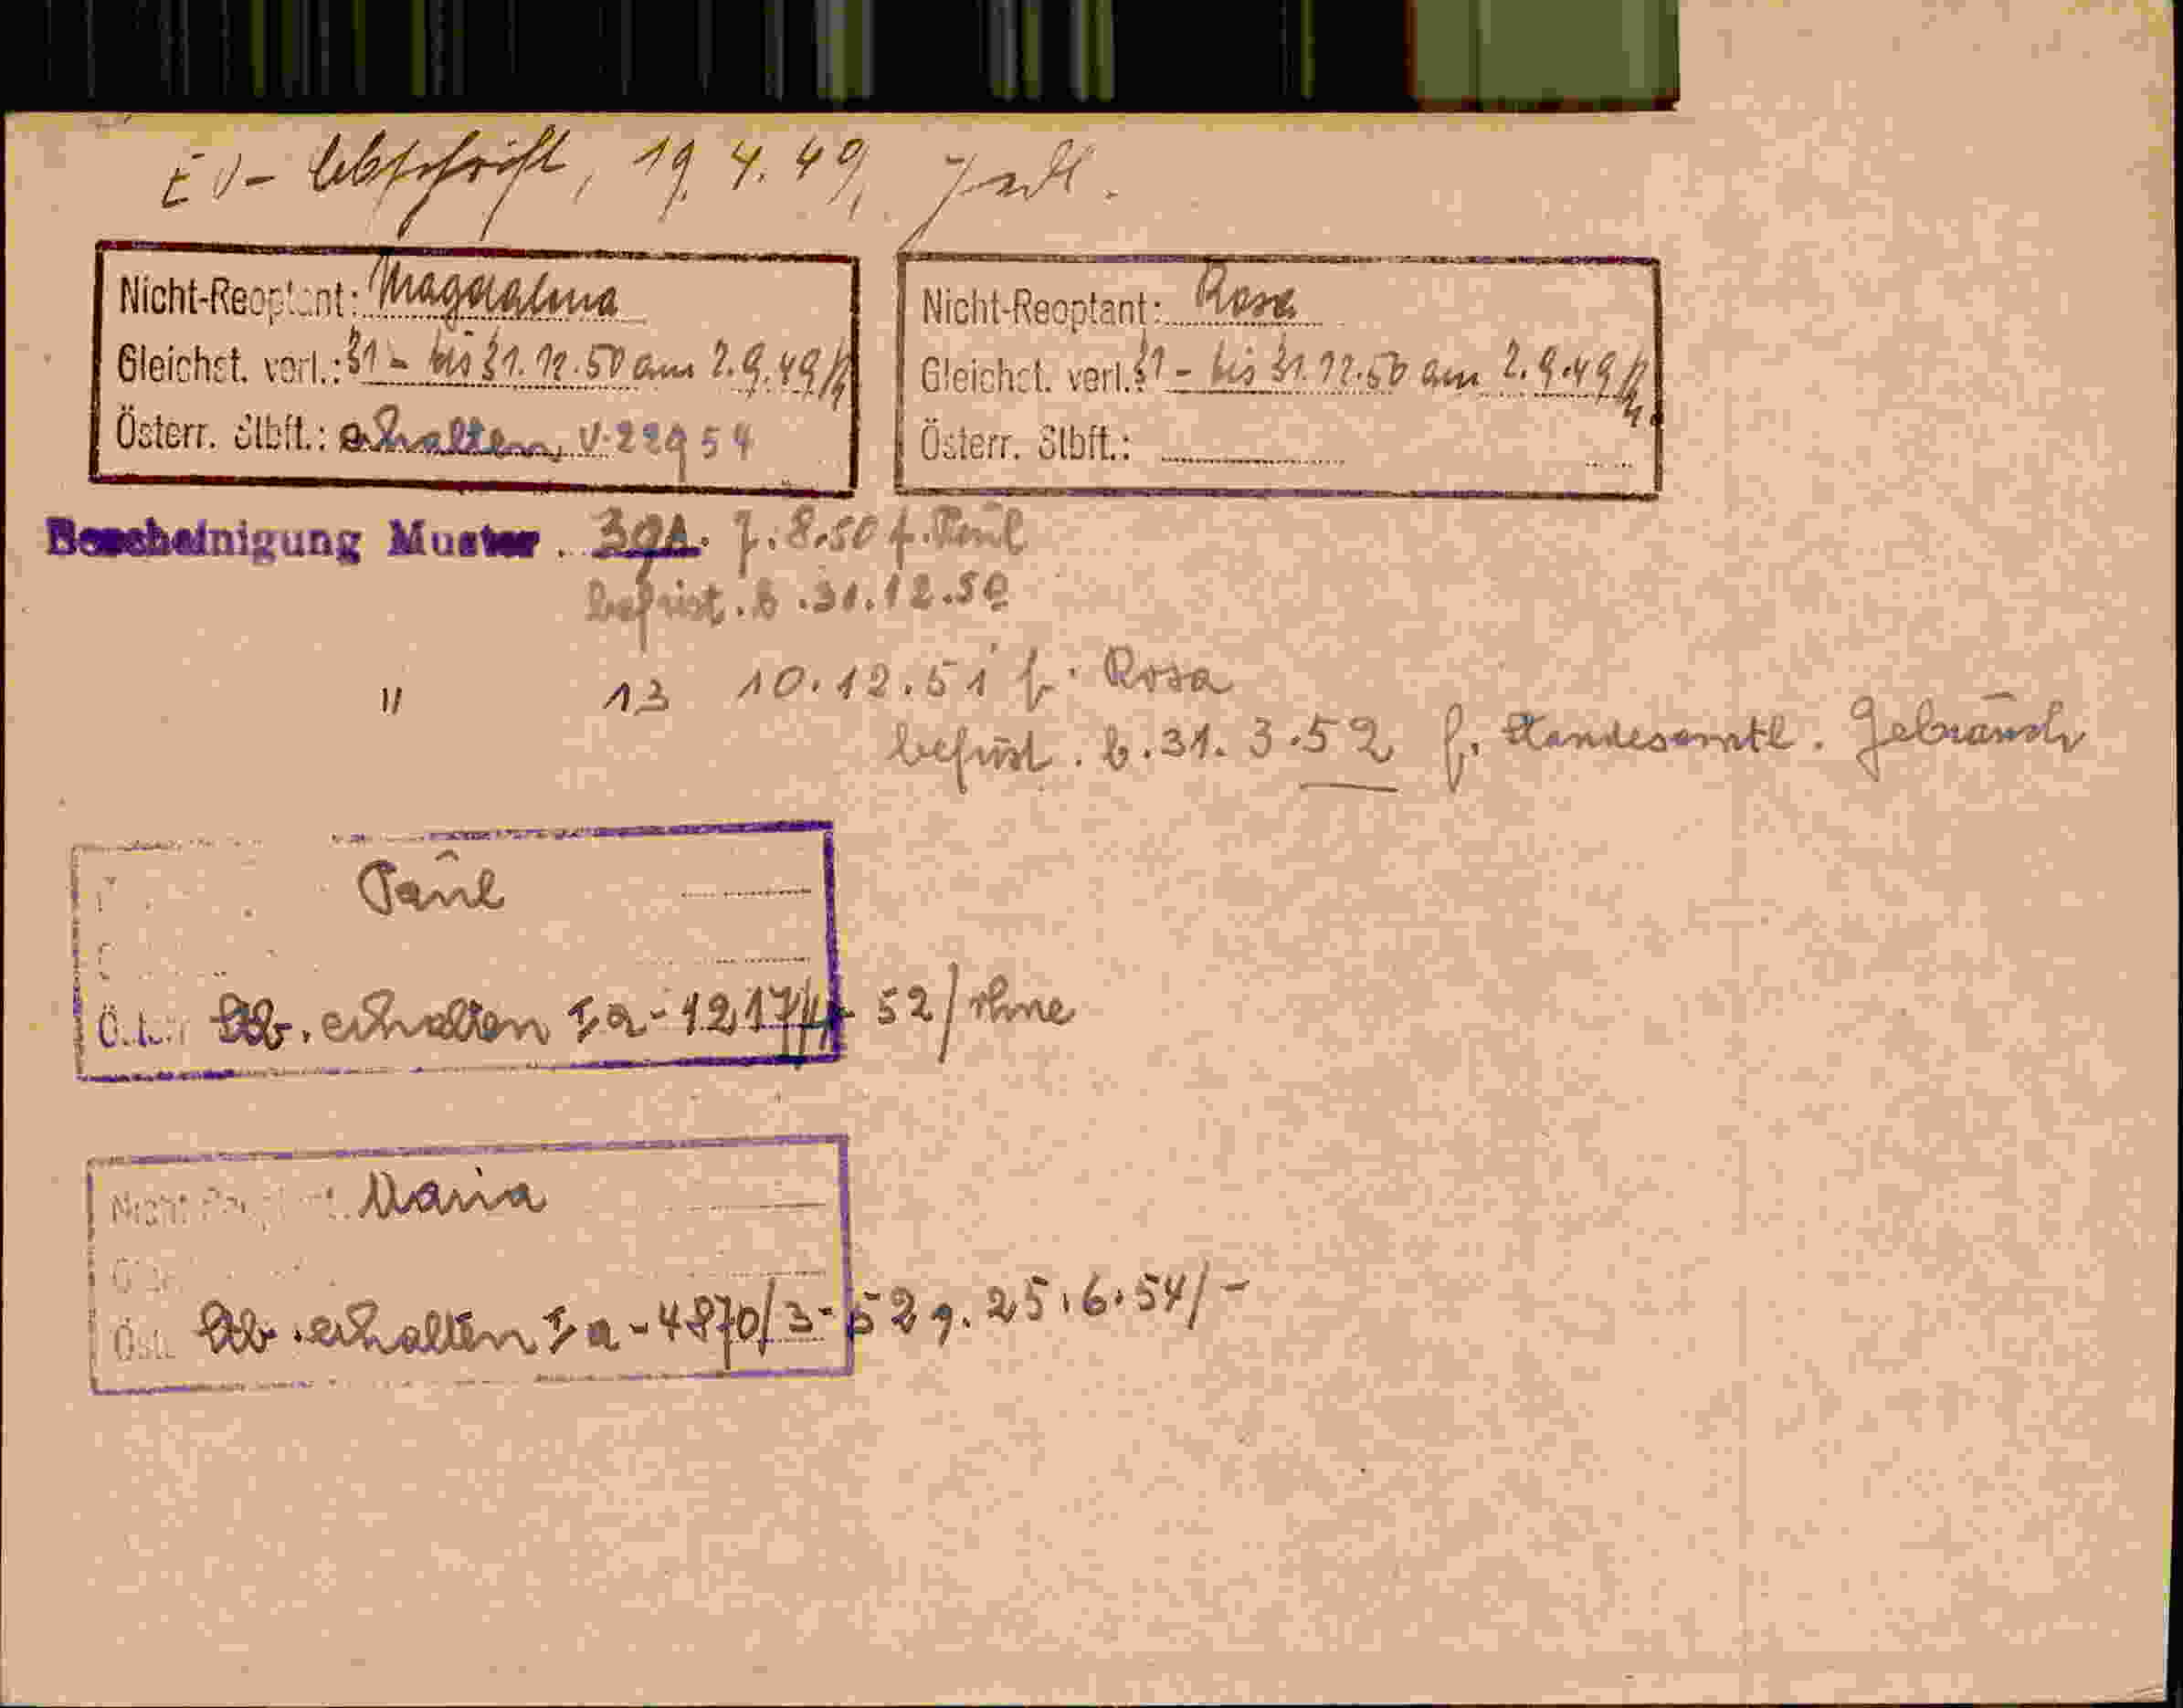 EV- Abschrift, 19.4.49,
Nicht-Reoptant: Magdalena
Gleichst. verl.: 31 - bis 31.12.50 am 2.9.49
Österr. Stbft.: erhalten, V-22954
Nicht-Reoptant: Rosa
Gleichst. verl. 31 - bis 31.12.50 am 2.9.49
Österr. Stbft.:
Bescheinigung Muster. 39A. 7.8.50 f. Paul
befrist. b. 31.12.50
" 13 10.12.51 f. Rosa
befrist. b. 31.3.52 f. Standesamtl. Gebrauch
Paul
erhalten Ia-1217/ 52/
Nicht-Reoptant. Maria
Öst. erhalten Ia-4870/3-52 g. 25.6.54/-